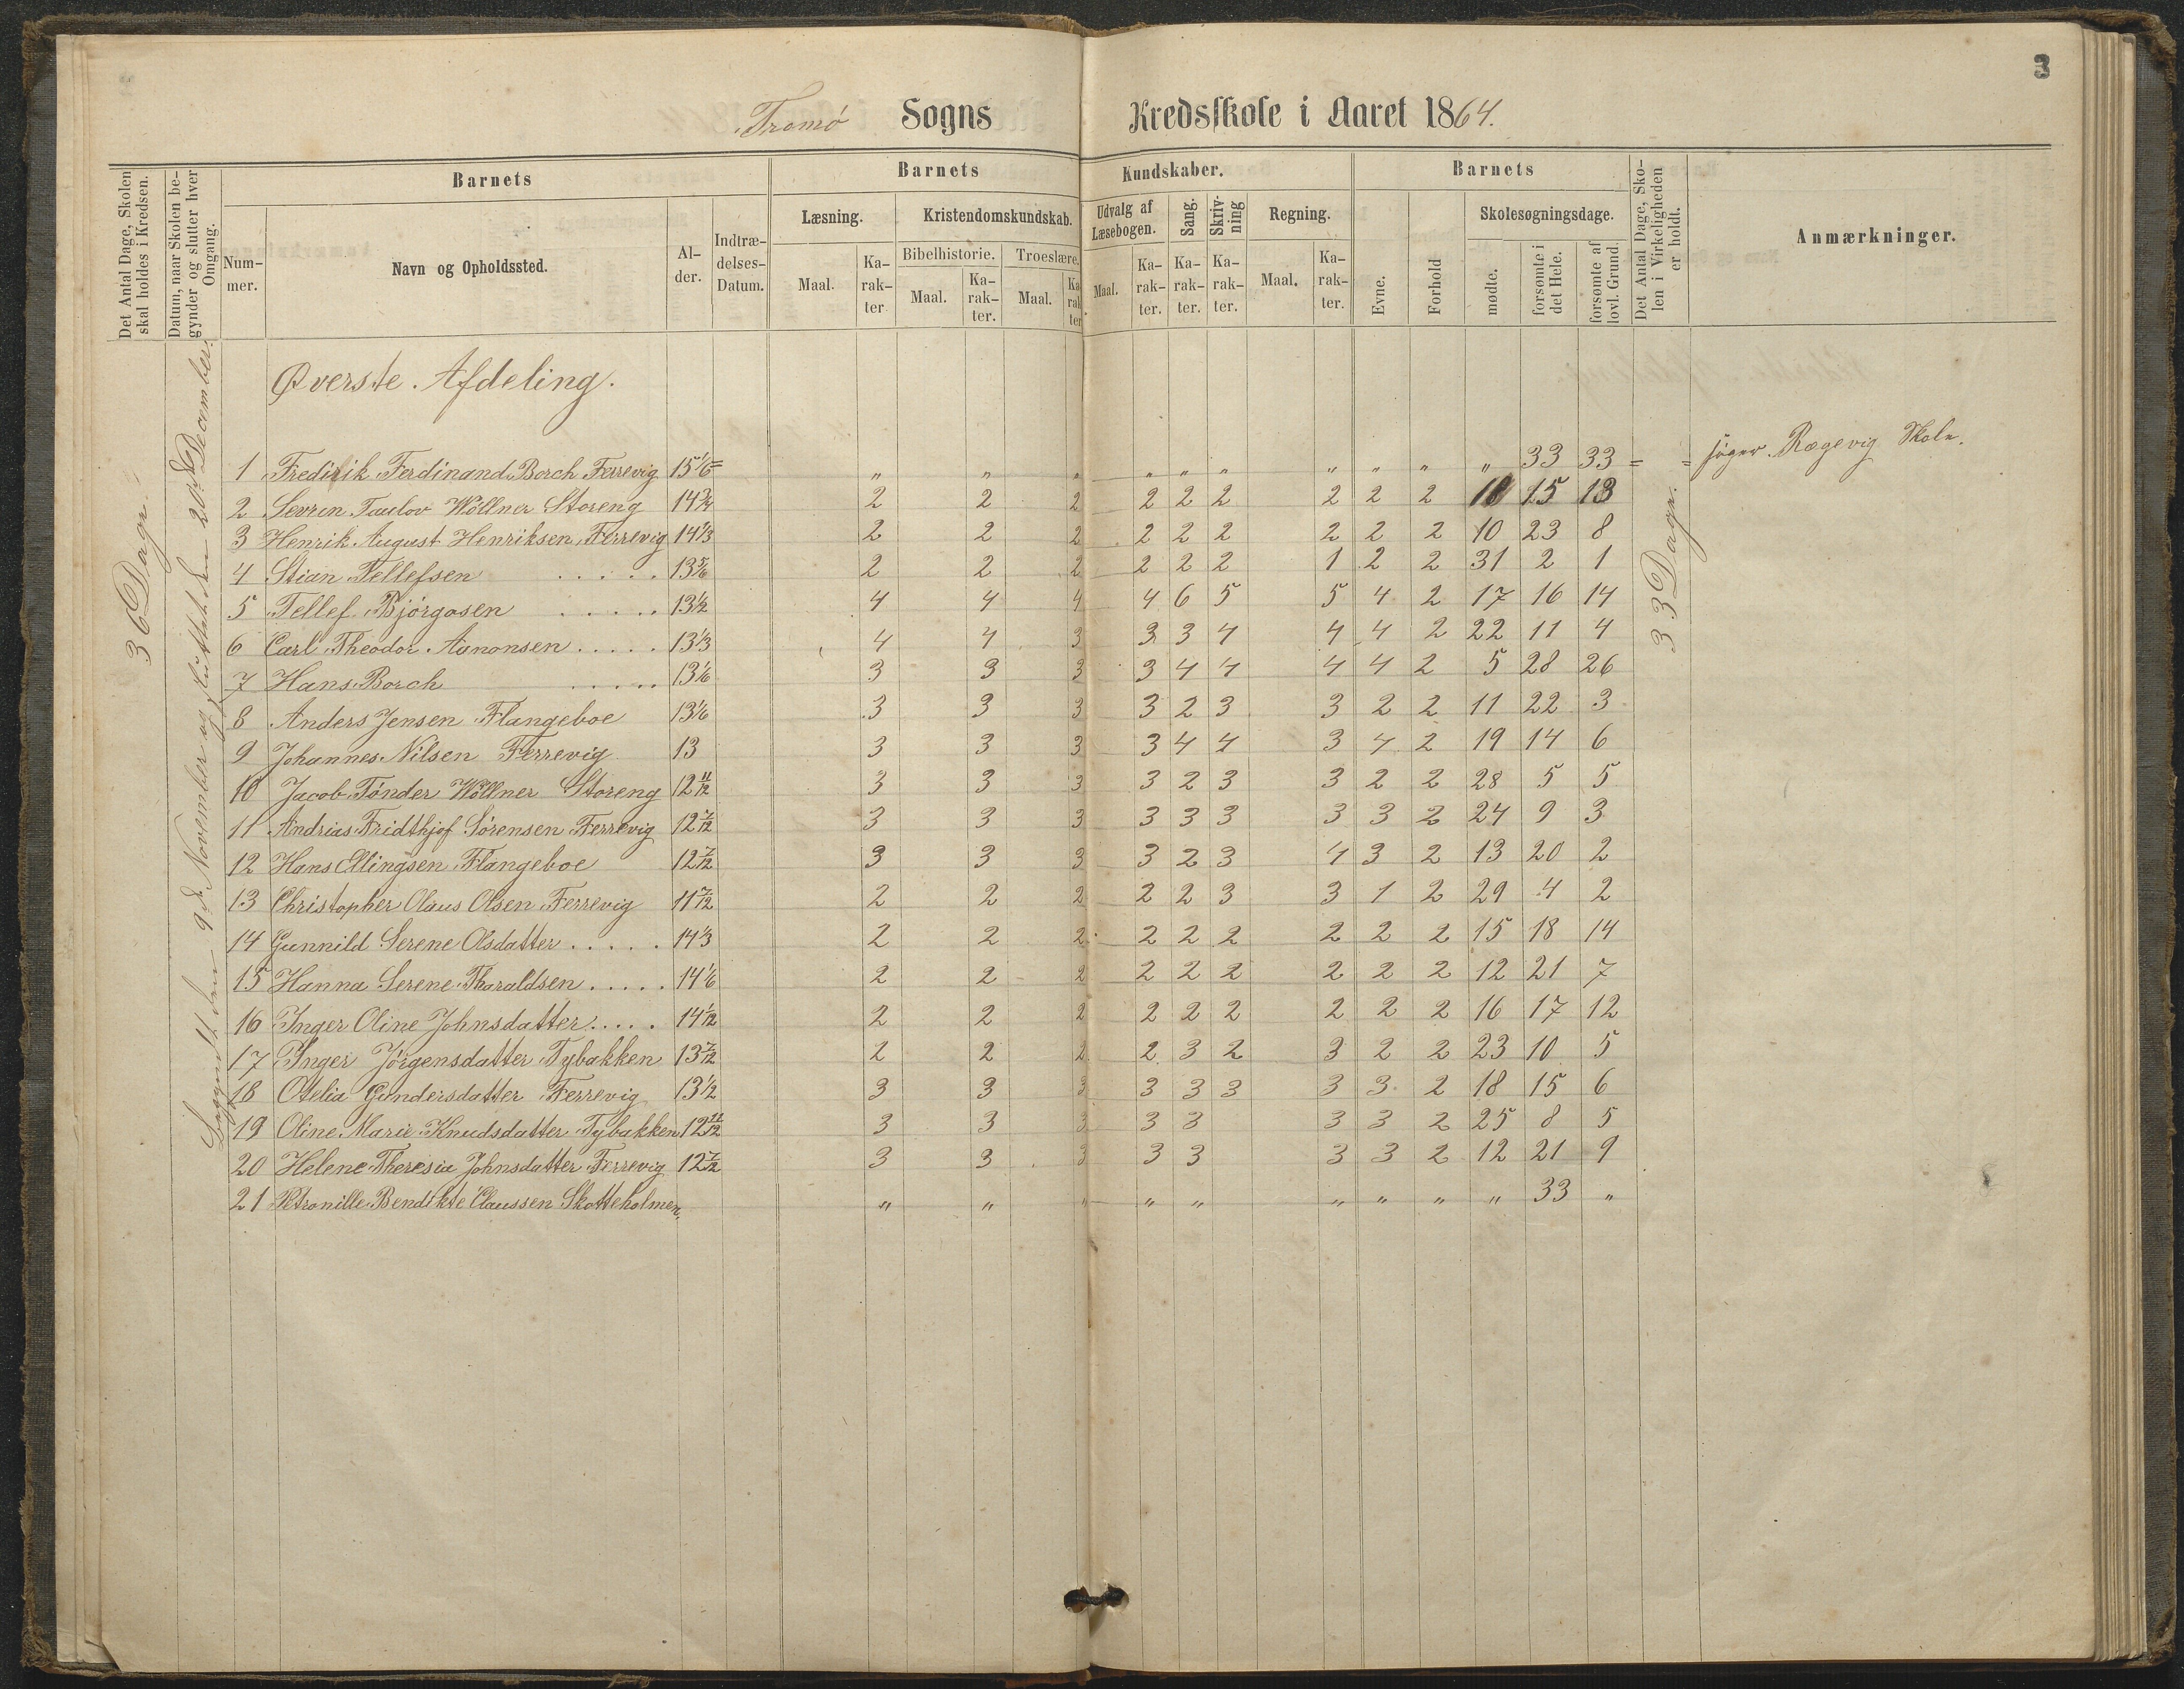 3
Tromö Sogns Kredsskole i Aaret 1864.
Det Antal Dage, Skolen skal holdes i Kredsen.
Datum, naar Skolen begynder og slutter hver Omgang.
Barnets
Nummer.
Navn og Opholdssted.
Alder.
Indtrædelses-Datum.
Barnets Kundskaber.
Læsning.
Maal.
Karakter
Kristendomskundskab.
Bibelhistorie.
Maal.
Karakter.
Troeslære.
Maal.
Karakter
Udvalg af Læsebogen.
Maal.
Karakter.
Sang.
Karakter.
Skrivning
Karakter.
Regning.
Maal.
Karakter.
Barnets
Evne.
Forhold
Skolesøgningsdage.
mødte.
forsømte i det Hele.
forsømte af lovl. Grund.
Det Antal Dage, Skolen i Virkeligheden er holdt.
Anmærkninger.
36 Dage.
den 9de November og sluttet den 20de December.
Øverste Afdeling.
1 Fredirik Ferdinand Borch Ferrevig 15 1/6 = " " " " " " " " " " 33 33 = = søger Rægevig Skole.
2 Sevren Taulov Wöllner Storeng 14 3/4 2 2 2 2 2 2 2 2 2 18 15 13
3 Henrik August Henriksen Ferrevig 14 1/3 2 2 2 2 2 2 2 2 2 10 23 8
4 Stian Tellefsen ..... 13 5/6 2 2 2 2 2 2 1 2 2 31 2 1
5 Tellef Bjørgosen ..... 13 1/2 4 4 4 4 6 5 5 4 2 17 16 14
6 Carl Theodor Aanonsen ..... 13 1/3 4 4 3 3 3 4 4 4 2 22 11 4
7 Hans Borch ..... 13 1/6 3 3 3 3 4 4 4 4 2 5 28 26
8 Anders Jensen Flangeboe 13 1/6 3 3 3 3 2 3 3 2 2 11 22 3
9 Johannes Nilsen Ferrevig 13 3 3 3 3 4 4 3 4 2 19 14 6
10 Jacob Tønder Wöllner Storeng 12 11/12 3 3 3 3 2 3 3 2 2 28 5 5
11 Andrias Fridthjof Sørensen Ferrevig 12 7/12 3 3 3 3 3 3 3 3 2 24 9 3
12 Hans Ellingsen Flangeboe 12 7/12 3 3 3 3 2 3 4 3 2 13 20 2
13 Christopher Olaus Olsen Ferrevig 11 7/12 2 2 2 2 2 3 3 1 2 29 4 2
14 Gunnild Serene Olsdatter ..... 14 1/3 2 2 2 2 2 2 2 2 2 15 18 14
15 Hanna Serene Tharaldsen ..... 14 1/6 2 2 2 2 2 2 2 2 2 12 21 7
16 Inger Oline Johnsdatter ..... 14 1/12 2 2 2 2 2 2 2 2 2 16 17 12
17 Inger Jørgensdatter Tybakken 13 7/12 2 2 2 2 3 2 3 2 2 23 10 5
18 Otelia Gundersdatter Ferrevig 13 1/2 3 3 3 3 3 3 3 3 2 18 15 6
19 Oline Marie Knudsdatter Tybakken 12 3 3 3 3 3 3 3 2 25 8 5
20 Helene Theresia Johnsdatter Ferrevig 12 7/12 3 3 3 3 3 3 3 2 12 21 9
21 Petronille Bendikte Claussen Skotteholmen " " " " " " " " " 33 "
33 Dage.